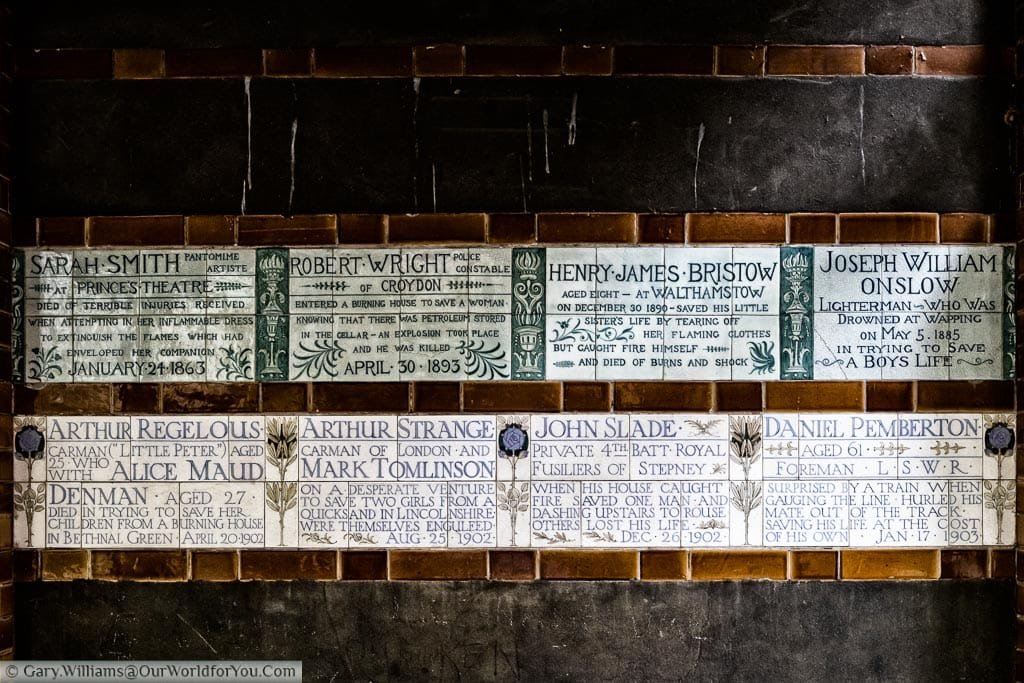 SARAH·SMITH PANTOMIME ARTISTE
AT PRINCES·THEATRE
DIED OF TERRIBLE INJURIES RECEIVED
WHEN ATTEMPTING IN HER INFLAMMABLE DRESS
TO EXTINGUISH THE FLAMES WHICH HAD
ENVELOPED HER COMPANION
JANUARY·24·1863
ROBERT·WRIGHT POLICE CONSTABLE
OF CROYDON
ENTERED A BURNING HOUSE TO SAVE A WOMAN
KNOWING THAT THERE WAS PETROLEUM STORED
IN THE CELLAR – AN EXPLOSION TOOK PLACE
AND HE WAS KILLED
APRIL·30·1893
HENRY·JAMES·BRISTOW
AGED EIGHT – AT WALTHAMSTOW
ON DECEMBER 30 1890 – SAVED HIS LITTLE
SISTER'S LIFE BY TEARING OFF
HER FLAMING CLOTHES
BUT CAUGHT FIRE HIMSELF
AND DIED OF BURNS AND SHOCK
JOSEPH WILLIAM
ONSLOW
LIGHTERMAN – WHO WAS
DROWNED AT WAPPING
ON MAY 5.1885
IN TRYING TO SAVE
A BOYS LIFE
ARTHUR REGELOUS·
CARMAN ("LITTLE PETER") AGED
25·WHO WITH ALICE MAUD
DENMAN·AGED 27
DIED IN TRYING TO SAVE HER
CHILDREN FROM A BURNING HOUSE
IN BETHNAL GREEN APRIL 20·1902
ARTHUR STRANGE
CARMAN OF LONDON AND
MARK TOMLINSON
ON A DESPERATE VENTURE
TO SAVE TWO GIRLS FROM A
QUICKSAND IN LINCOLNSHIRE·
WERE THEMSELVES ENGULFED·
AUG·25·1902·
JOHN SLADE·
PRIVATE 4TH BATT·ROYAL
FUSILIERS OF STEPNEY
WHEN HIS HOUSE CAUGHT
FIRE SAVED ONE MAN·AND
DASHING UPSTAIRS TO ROUSE
OTHERS LOST HIS LIFE
DEC·26·1902·
DANIEL PEMBERTON·
AGED 61·
FOREMAN L·S·W·R·
SURPRISED BY A TRAIN WHEN
GAUGING THE LINE·HURLED HIS
MATE OUT OF THE TRACK·
SAVING HIS LIFE AT THE COST
OF HIS OWN JAN·17·1903·
© Gary.Williams@OurWorldforYou.Com